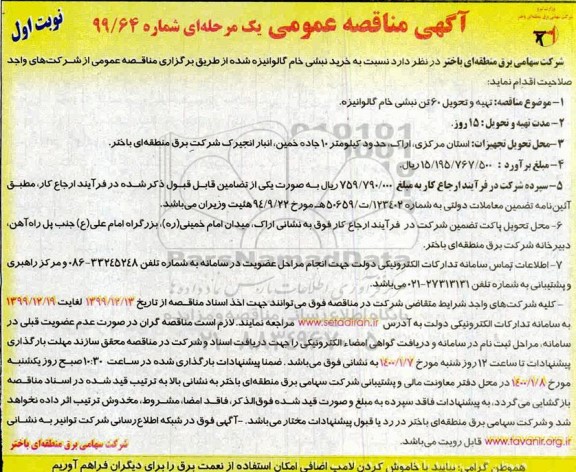 نوبت اول
آگهی مناقصه عمومی یک مرحله‌ای شماره ۹۹/۶۴
شرکت سهامی برق منطقه‌ای باختر در نظر دارد نسبت به خرید نبشی خام گالوانیزه شده از طریق برگزاری مناقصه عمومی از شرکت‌های واجد
صلاحیت اقدام نماید:
۱-موضوع مناقصه: تهیه و تحویل ۶۰ تن نبشی خام گالوانیزه.
۲-مدت تهیه و تحویل: ۱۵ روز.
۳-محل تحویل تجهیزات: استان مرکزی، اراک، حدود کیلومتر ۱۰ جاده خمین، انبار انجیرک شرکت برق منطقه‌ای باختر.
۴-مبلغ برآورد : ۱۵/۱۹۵/۷۶۷/۵۰۰ ریال.
۵-سپرده شرکت در فرآیند ارجاع کار به مبلغ ۷۵۹/۷۹۰/۰۰۰ ریال به صورت یکی از تضامین قابل قبول ذکر شده در فرآیند ارجاع کار، مطبق
آئین‌نامه تضمین معاملات دولتی به شماره ۱۲۳۴۰۲/ت/۵۰۶۵۹هـ مورخ ۹۴/۹/۲۲ هئیت وزیران می‌باشد.
۶-محل تحویل پاکت تضمین شرکت در فرآیند ارجاع کار فوق به نشانی اراک، میدان امام خمینی(ره)، بزرگراه امام علی(ع) جنب پل راه‌آهن،
دبیرخانه شرکت برق منطقه‌ای باختر.
۷-اطلاعات تماس سامانه تدارکات الکترونیکی دولت جهت انجام مراحل عضویت در سامانه به شماره تلفن ۳۳۲۴۵۲۴۸-۰۸۶ و مرکز راهبری
و پشتیبانی به شماره تلفن ۲۷۳۱۳۱۳۱-۰۲۱ می‌باشد.
- کلیه شرکت‌های واجد شرایط متقاضی شرکت در مناقصه فوق می‌توانند جهت اخذ اسناد مناقصه از تاریخ ۱۳۹۹/۱۲/۱۳ لغایت ۱۳۹۹/۱۲/۱۹
به سامانه تدارکات الکترونیکی دولت به آدرس www.setadiran.ir مراجعه نمایند. لازم است مناقصه گران در صورت عدم عضویت قبلی در
سامانه، مراحل ثبت نام در سامانه و دریافت گواهی امضاء الکترونیکی را جهت دریافت اسناد و شرکت در مناقصه محقق سازند مهلت بارگذاری
پیشنهادات تا ساعت ۱۲ روز شنبه مورخ ۱۴۰۰/۱/۷ به نشانی فوق می‌باشد. ضمنا پیشنهادات بارگذاری شده در ساعت ۱۰:۳۰ صبح روز یکشنبه
مورخ ۱۴۰۰/۱/۸ در محل دفتر معاونت مالی و پشتیبانی شرکت سهامی برق منطقه‌ای باختر به نشانی بالا به ترتیب قید شده در اسناد مناقصه
بازگشایی می‌گردد. به پیشنهادات فاقد سپرده به مبلغ و صورت قید شده فوق‌الذکر، فاقد امضا، مشروط، مخدوش ترتیب اثر داده نخواهد
شد و شرکت سهامی برق منطقه‌ای باختر در رد یا قبول پیشنهادات مختار می‌باشد. -آگهی فوق در شبکه اطلاع‌رسانی شرکت توانیر به نشانی
www.tavanir.org.ir قابل رویت می‌باشد.
شرکت سهامی برق منطقه‌ای باختر
هموطن گرامی: بیایید با خاموش کردن لامپ اضافی امکان استفاده از نعمت برق را برای دیگران فراهم آوریم